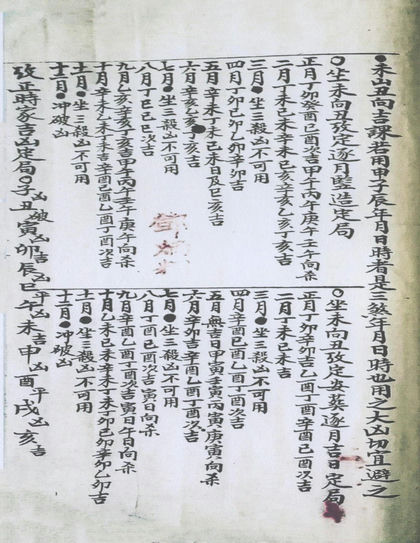 ●未山丑向吉課若用申子辰年月日時者是三煞年月日時也用之大凶切宜避之
○坐未向丑改定逐月竪造定局
正月丁卯癸酉己酉次吉甲午丙午庚午壬午向杀
二月丁未己未辛未己亥辛亥乙亥丁亥吉
三月●坐三殺凶不可用
四月丁卯己卯乙卯辛卯吉
五月辛未丁未己未日及己亥次吉
六月辛亥乙亥次吉
七月●坐三殺凶不可用
八月丁巳己巳次吉
九月乙亥辛亥丁亥吉甲午丙午壬午庚午向杀
十月辛未乙未丁未吉辛酉己酉乙酉丁酉次吉
十一月●坐三殺凶不可用
十二月●冲破凶
○坐未向丑改定安葬逐月吉日定局
正月丁卯辛卯吉乙酉丁酉辛酉己酉次吉
二月丁未己未吉
三月●坐三殺凶不可用
四月辛酉己酉乙酉丁酉次吉
五月無吉日甲寅壬寅丙寅庚寅向杀
六月辛卯吉辛酉乙酉丁酉次吉
七月●坐三殺凶不可用
八月丁酉己酉次吉寅日向杀
九月辛酉乙酉丁酉次吉寅日午日向杀
十月乙未己未辛未丁未丁卯己卯辛卯乙卯吉
十一月●坐三殺凶不可用
十二月●冲破凶
改正時家吉凶定局○子凶丑破寅凶卯吉辰凶巳平午凶未吉申凶酉平戌凶亥吉